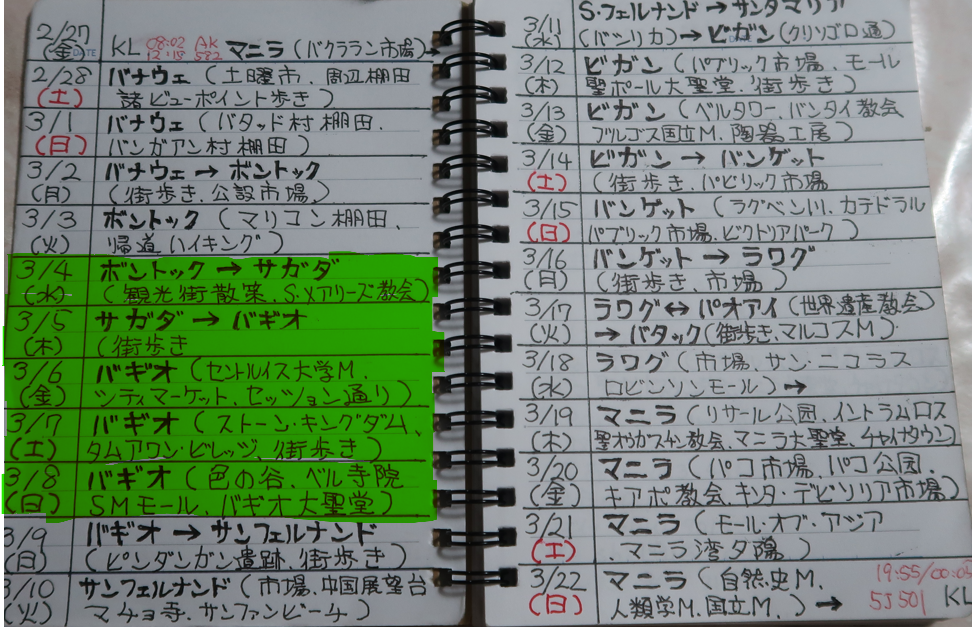 2/27
(金) DATE KL 08:02 AK マニラ (バクララン市場)→
12:15 582
2/28 バナウェ (土曜市、周辺棚田
(土) 諸ビューポイント歩き)
3/1 バナウェ (バタッド村棚田、
(日) バンガアン村棚田)
3/2 バナウェ → ボントック
(月) (街歩き、公設市場)
3/3 ボントック (マリコン棚田、
(火) 帰道ハイキング)
3/4 ボントック → サガダ
(水) (観光街散策、S・メアリーズ教会)
3/5 サガダ → バギオ
(木) (街歩き
3/6 バギオ (セントルイス大学M、
(金) シティマーケット、セッション通り)
3/7 バギオ (ストーン・キングダム、
(土) タムアワン・ビレッジ、街歩き)
3/8 バギオ (色の谷、ベル寺院
(日) SMモール、バギオ大聖堂)
3/9 バギオ → サンフェルナンド
(日) (ピンダンガン遺跡、街歩き)
3/10 サンフェルナンド (市場、中国展望台
(火) マチョ寺、サンファンビーチ)
3/11 S・フェルナンド → サンタマリア
(水) (バシリカ) → ビガン (クリソゴロ通)
3/12 ビガン (パブリック市場、モール
(木) 聖ポール大聖堂、街歩き)
3/13 ビガン (ベルタワー、バンタイ教会
(金) ブルゴス国立M、陶器工房)
3/14 ビガン → バンゲット
(土) (街歩き、パビリック市場
3/15 バンゲット (ラグベン川、カテドラル
(日) パブリック市場、ビクトリアパーク)
3/16 バンゲット → ラワグ
(月) (街歩き 市場)
3/17 ラワグ ↔ パオアイ (世界遺産教会)
(火) → バタック (街歩き、マルコスM)
3/18 ラワグ (市場、サン・ニコラス
(水) ロビンソンモール) →
3/19 マニラ (リサール公園、イントラムロス
(木) 聖オウガスチン教会、マニラ大聖堂、チャイナタウン)
3/20 マニラ (パコ市場、パコ公園、
(金) キアポ教会、キンタ・デビソリア市場)
3/21 マニラ (モール・オブ・アジア
(土) マニラ湾夕陽)
3/22 マニラ (自然史M、 19:55/00:05
(日) 人類学M、国立M、) → 5J501 KL